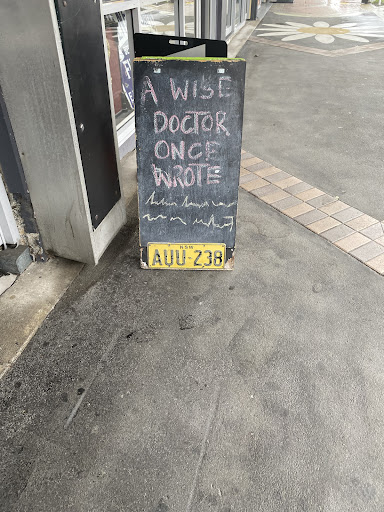 A WISE
DOCTOR
ONCE
WROTE
NSW
AUU-238